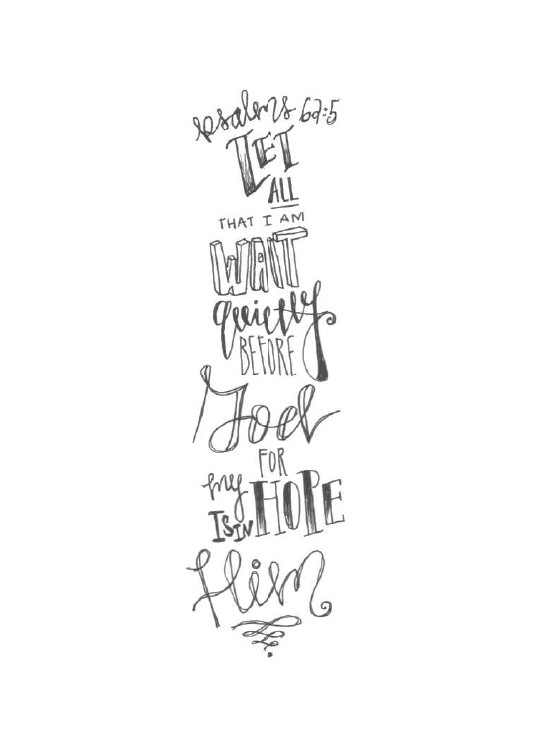 psalms 62:5
LET
ALL
THAT I AM
WAIT
quietly
BEFORE
God
FOR
my HOPE
IS IN
Him